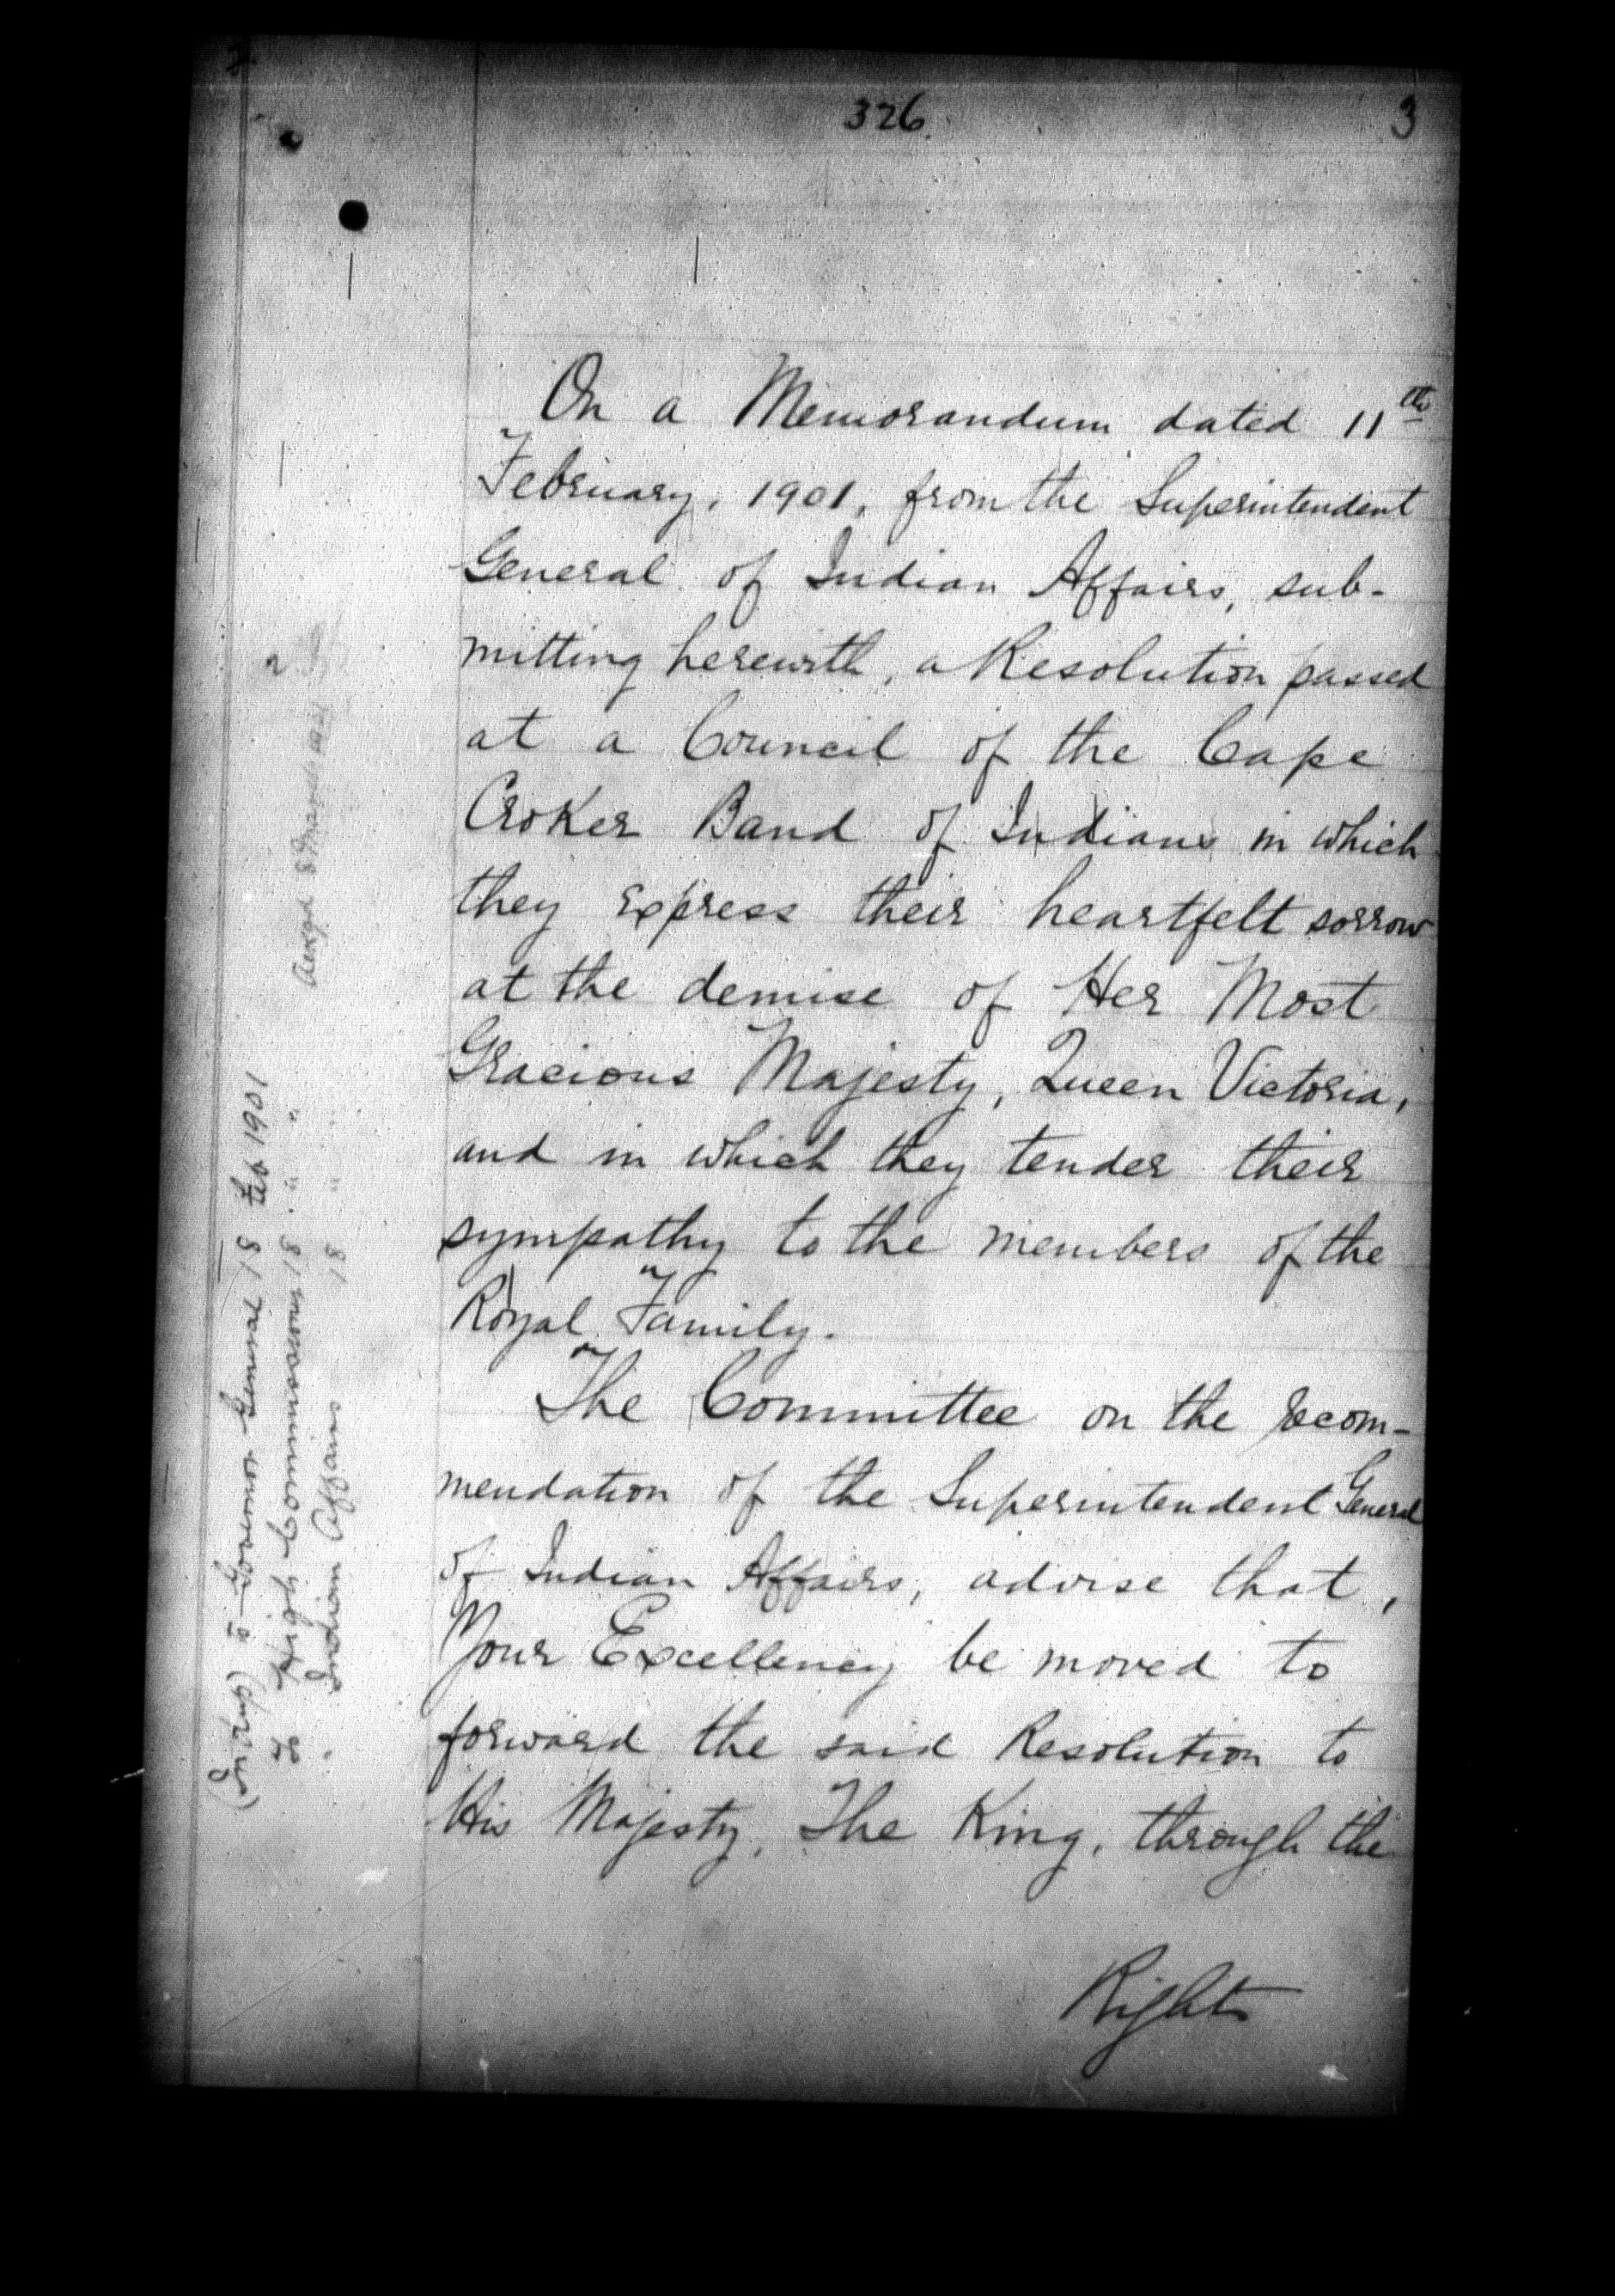 326.
3
On a Memorandum dated 11th
February, 1901, from the Superintendent
General of Indian Affairs, sub-
mitting herewith, a Resolution passed
at a Council of the Cape
Croker Band of Indians in which
they express their heartfelt sorrow
at the demise of Her Most
Gracious Majesty, Queen Victoria,
and in which they tender their
sympathy to the members of the
Royal Family.
The Committee on the recom-
mendation of the Superintendent General
of Indian Affairs, advise that,
Your Excellency be moved to
forward the said Resolution to
His Majesty, The King, through the
Right
Governor General 18 Feb 1901
High Commissioner 18 " "
Indian Affairs 18 " "
Ackgd 8 March 1901